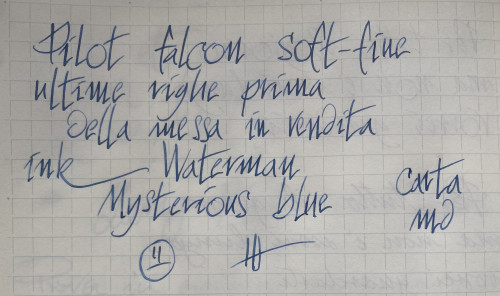 Pilot falcon soft-fine
ultime righe prima
Della messa in vendita
ink Waterman
Mysterious blue
carta
md